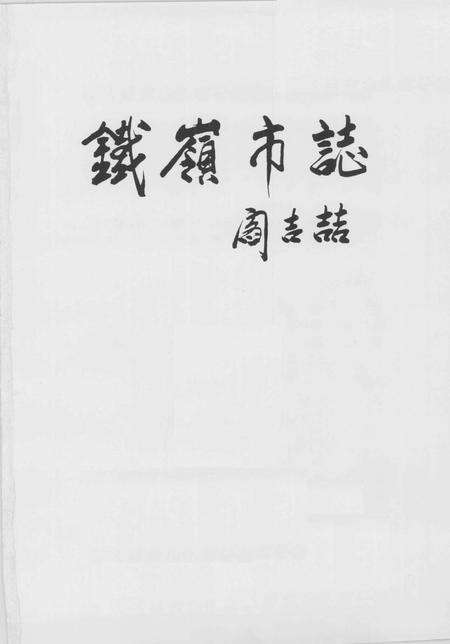 鐵嶺市誌
閻吉喆